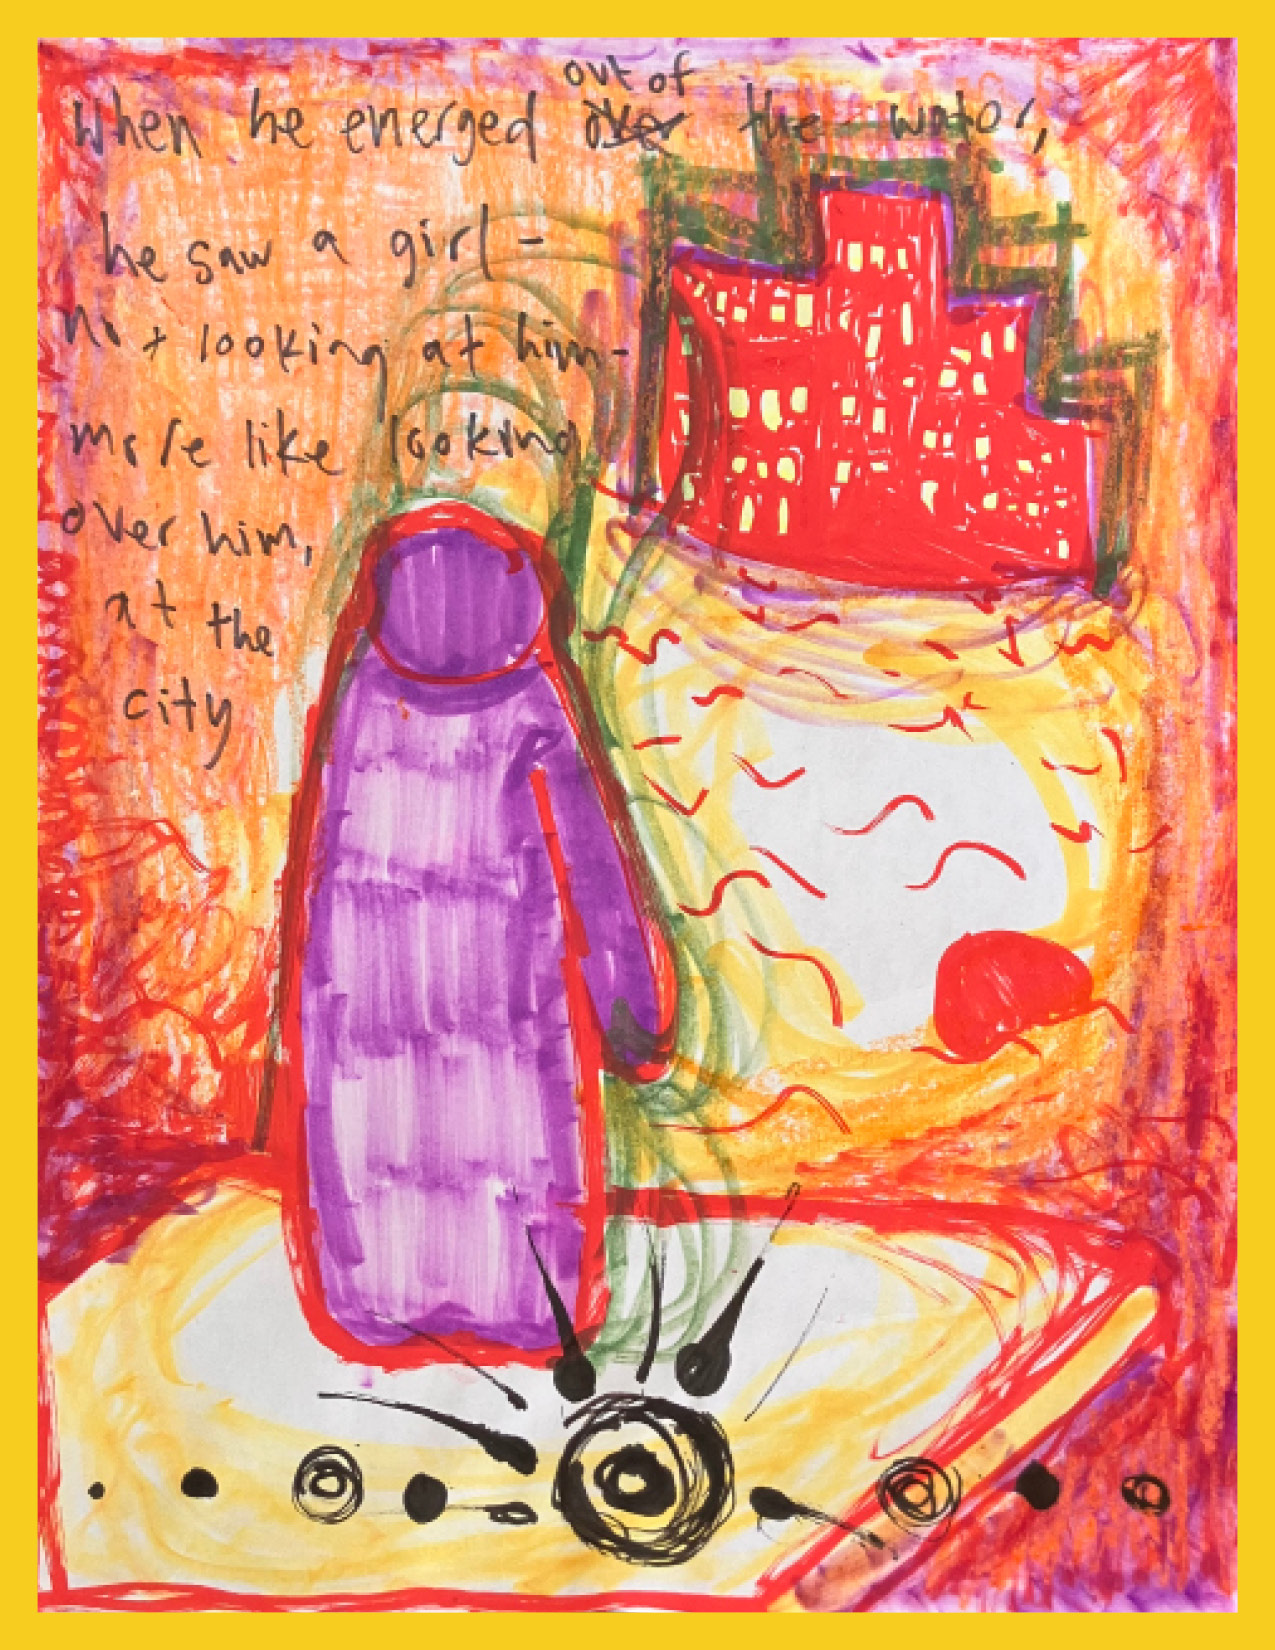 When he emerged out of the water,
he saw a girl -
not looking at him -
more like looking
over him,
at the
city